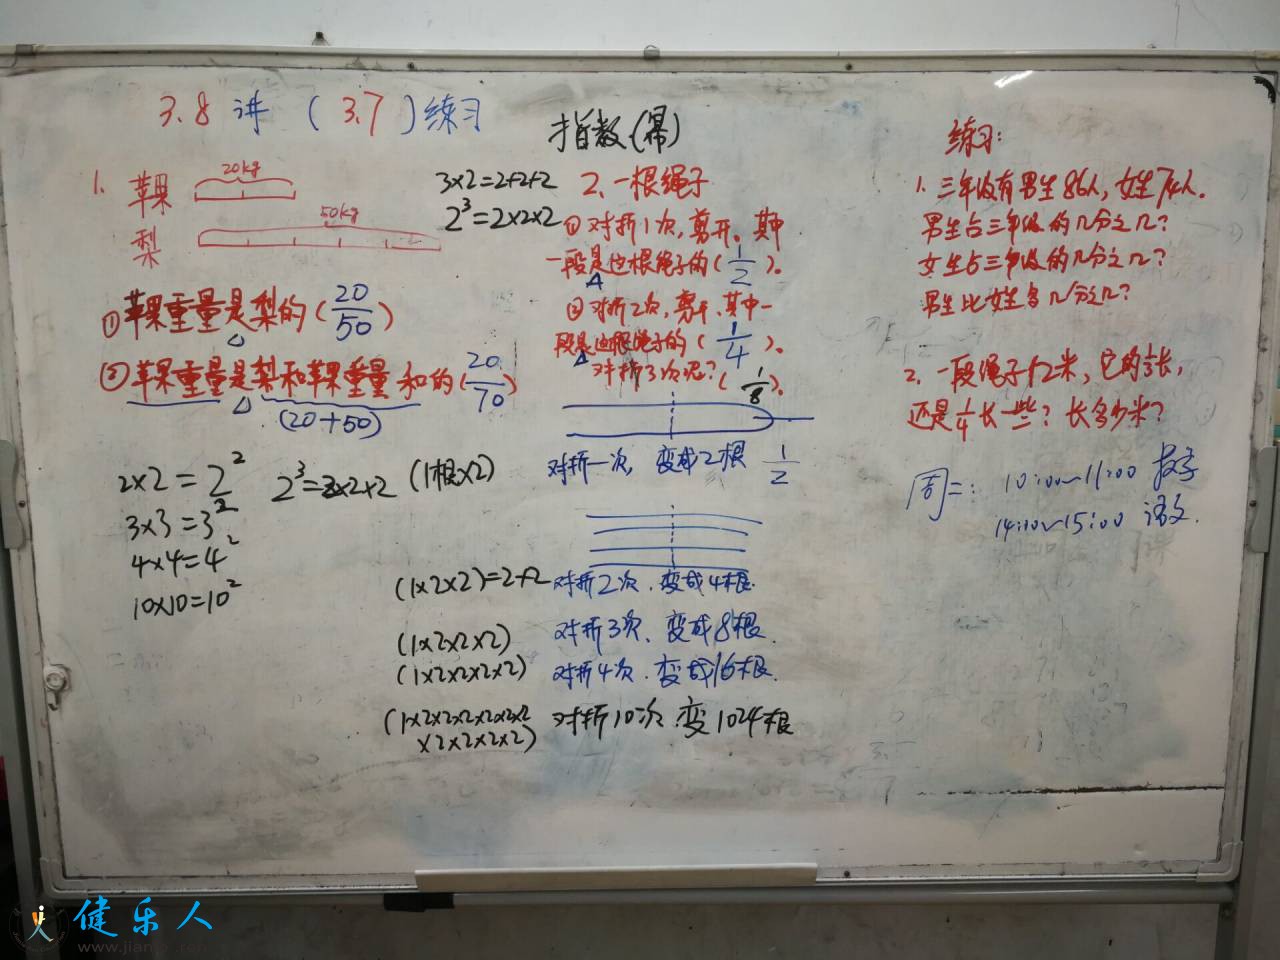 3.8 讲 (3.7)练习
指数(幂)
1. 苹果 20kg
梨 50kg
①苹果重量是梨的(20/50)
②苹果重量是梨和苹果重量和的(20/70)
(20+50)
2×2=2²
3×3=3²
4×4=4²
10×10=10²
3×2=2+2+2
2³=2×2×2
2. 一根绳子
①对折1次,剪开。其中
一段是这根绳子的(1/2)。
②对折2次,剪开,其中一
段是这根绳子的(1/4)。
对折3次呢?(1/8)。
2³=2×2×2 (1根×2) 对折一次,变成2根 1/2
(1×2×2)=2+2 对折2次.变成4根.
(1×2×2×2) 对折3次、变成8根.
(1×2×2×2×2) 对折4次.变成16根.
(1×2×2×2×2×2×2 对折10次.变1024根
×2×2×2×2)
练习:
1. 三年级有男生86人,女姓74人.
男生占三年级的几分之几?
女生占三年级的几分之几?
男生比女姓多几分之几?
2. 一段绳子长12米,它的
还是1/4长一些?长多少米?
周二: 10:00~11:00 数学
14:00~15:00 语文.
健乐人